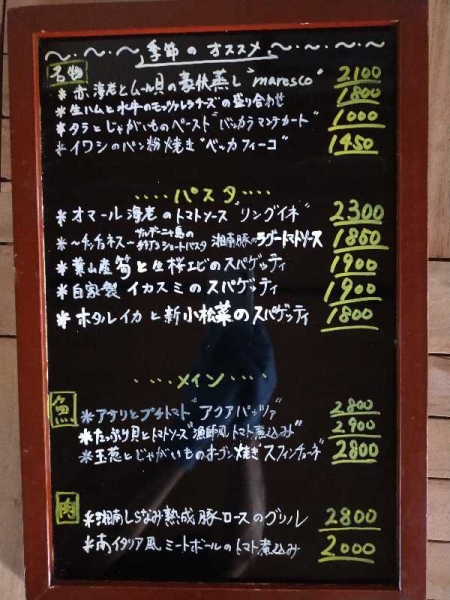 〜・〜・〜 季節のオススメ 〜・〜・〜
名物
＊赤海老とムール貝の豪快蒸し"maresco" 2100
＊生ハムと水牛のモッツァレラチーズの盛り合わせ 1800
＊タラとじゃがいものペースト"バッカラマンテカート" 1000
＊イワシのパン粉焼き"ベッカフィーコ" 1450
‥‥パスタ‥‥
＊オマール海老のトマトソース"リングイネ" 2300
＊〜チッチョネス〜サルデーニャ島の ショートパスタ 湘南豚のラグートマトソース 1850
＊葉山産筍と生桜エビのスパゲッティ 1900
＊自家製イカスミのスパゲッティ 1900
＊ホタルイカと新小松菜のスパゲッティ 1800
‥‥メイン‥‥
魚
＊アサリとプチトマト"アクアパッツァ" 2800
＊たっぷり貝とトマトソース"漁師風トマト煮込み" 2900
＊玉葱とじゃがいものオーブン焼き"スフィンチョーネ" 2800
肉
＊湘南しらなみ熟成豚ロースのグリル 2800
＊南イタリア風ミートボールのトマト煮込み 2000